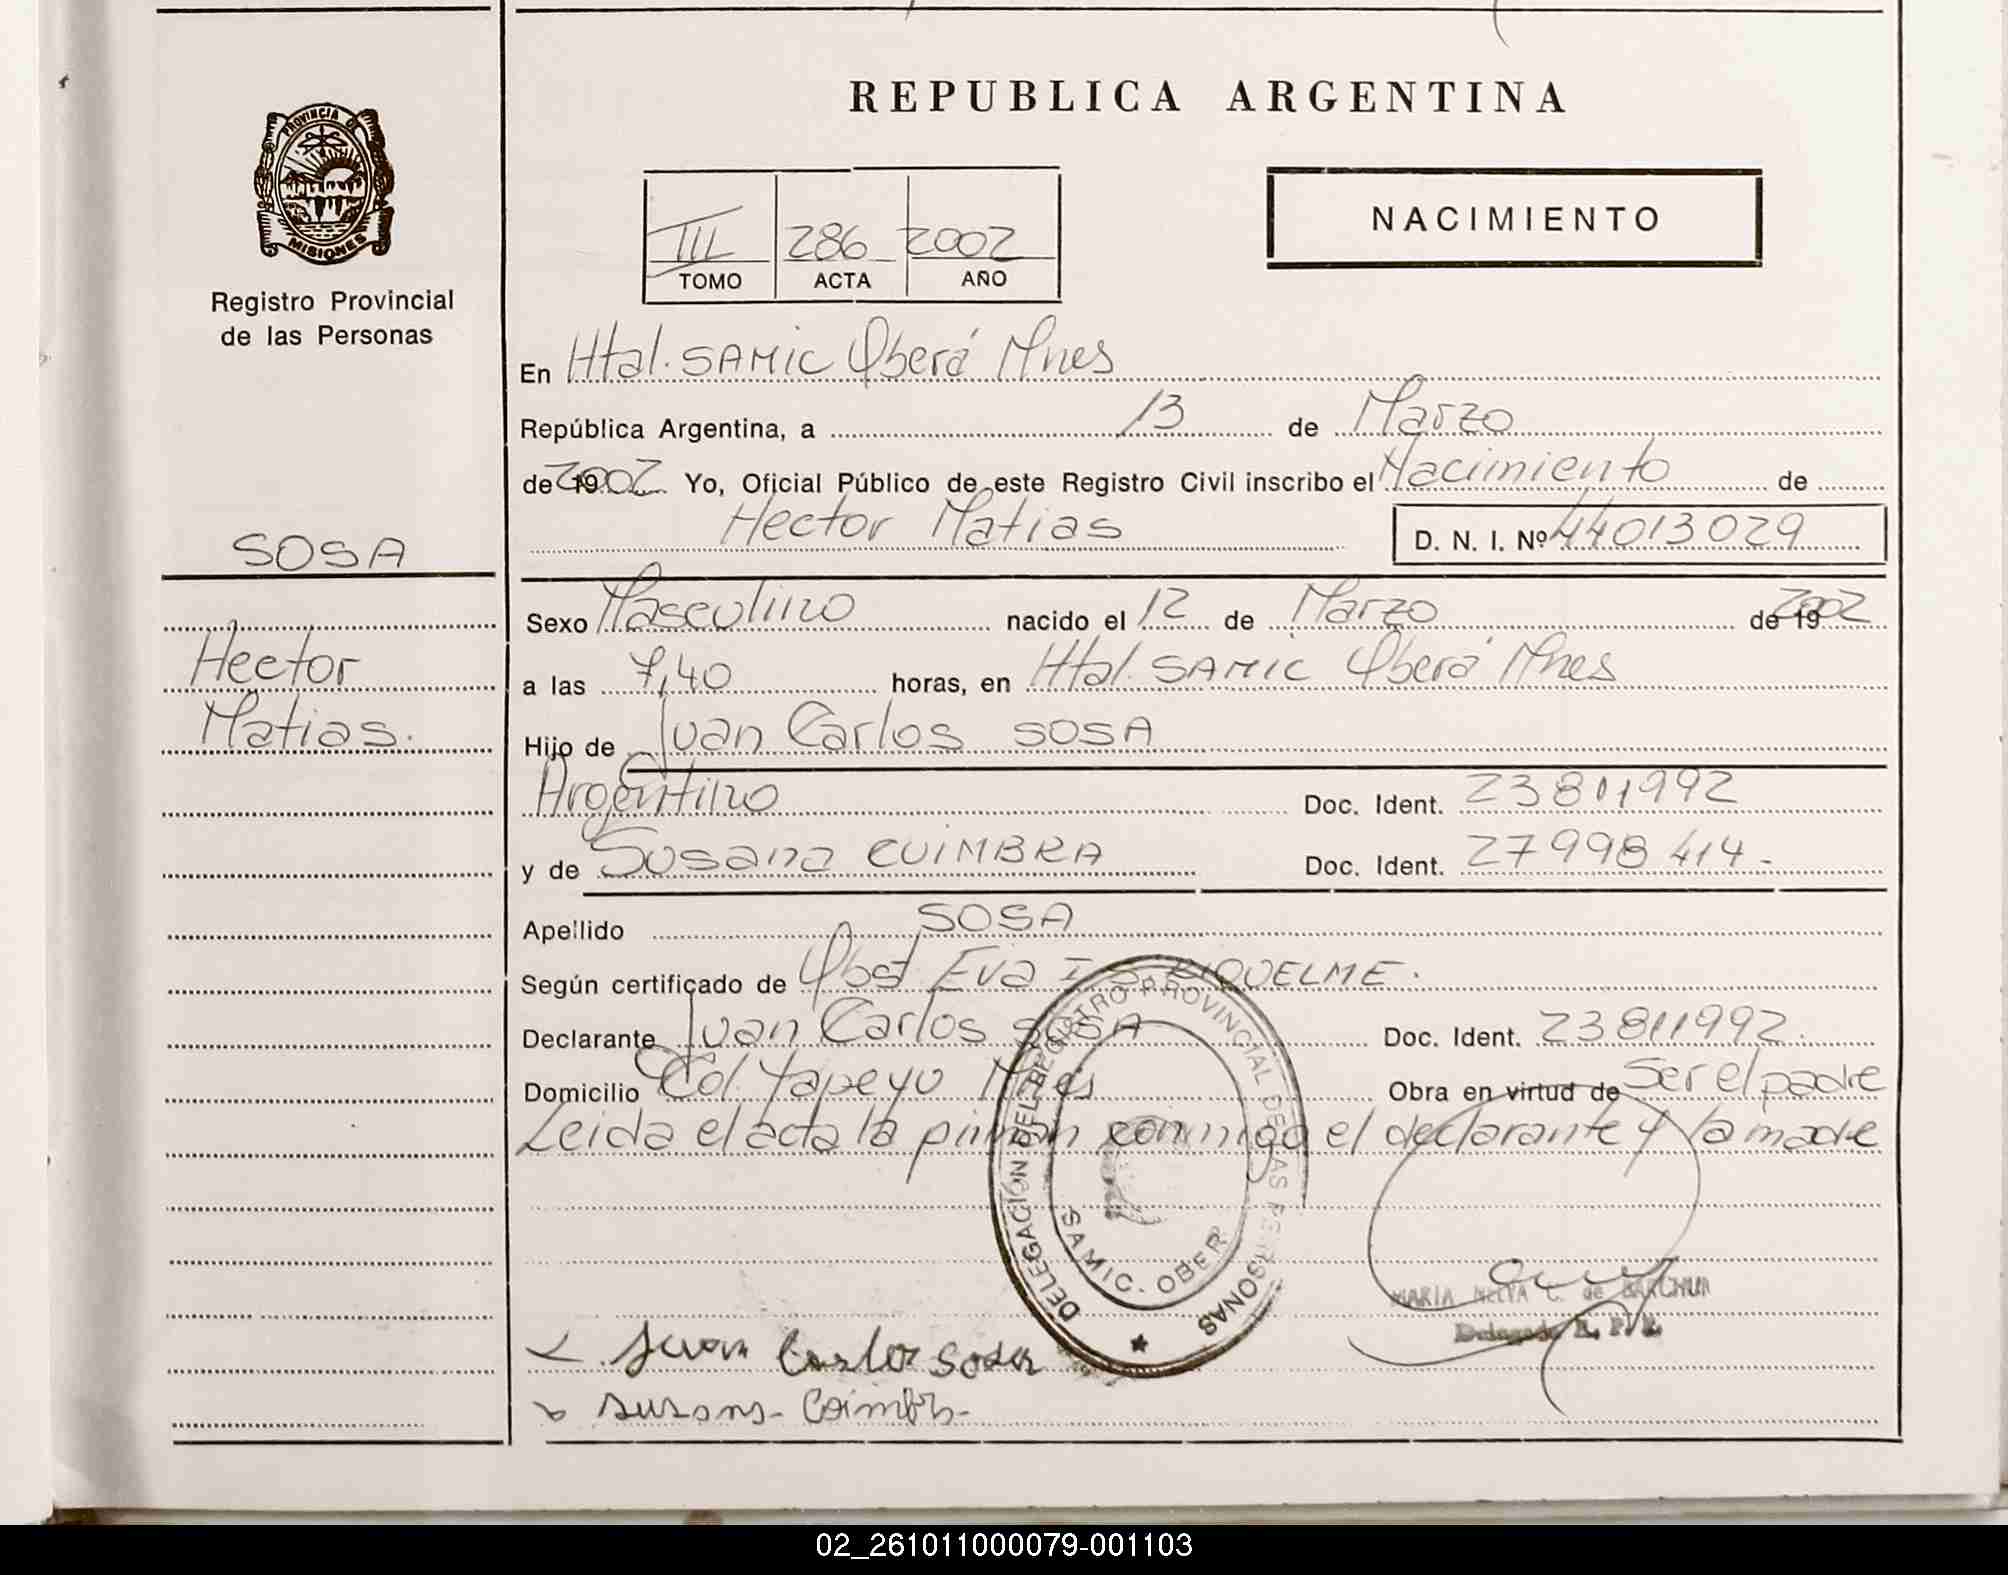 REPUBLICA ARGENTINA
PROVINCIA D
MISIONES
Registro Provincial
de las Personas
SOSA
Hector
Matias.
III 286 2002
TOMO ACTA AÑO
NACIMIENTO
En Htal. SAMIC Oberá Mnes
República Argentina, a 13 de Marzo
de 2002 Yo, Oficial Público de este Registro Civil inscribo el Nacimiento de
Hector Matias D. N. I. Nº 44013029
Sexo Masculino nacido el 12 de Marzo de 19 2002
a las 7,40 horas, en Htal. SAMIC Oberá Mnes
Hijo de Juan Carlos SOSA
Argentino Doc. Ident. 23811992
y de Susana CUIMBRA Doc. Ident. 27998414-
Apellido SOSA
Según certificado de Obst Eva I RIQUELME.
Declarante Juan Carlos SOSA Doc. Ident. 23811992.
Domicilio Col. Yapeyu Mnes Obra en virtud de Ser el padre
Leida el acta la firman conmigo el declarante y la madre
DELEGACIÓN DEL REGISTRO PROVINCIAL DE LAS PERSONAS
SAMIC. OBER
MARIA NELVA C. de
Delegada R. P. P.
Juan Carlos Sosa
Susana Coimbra
02_261011000079-001103